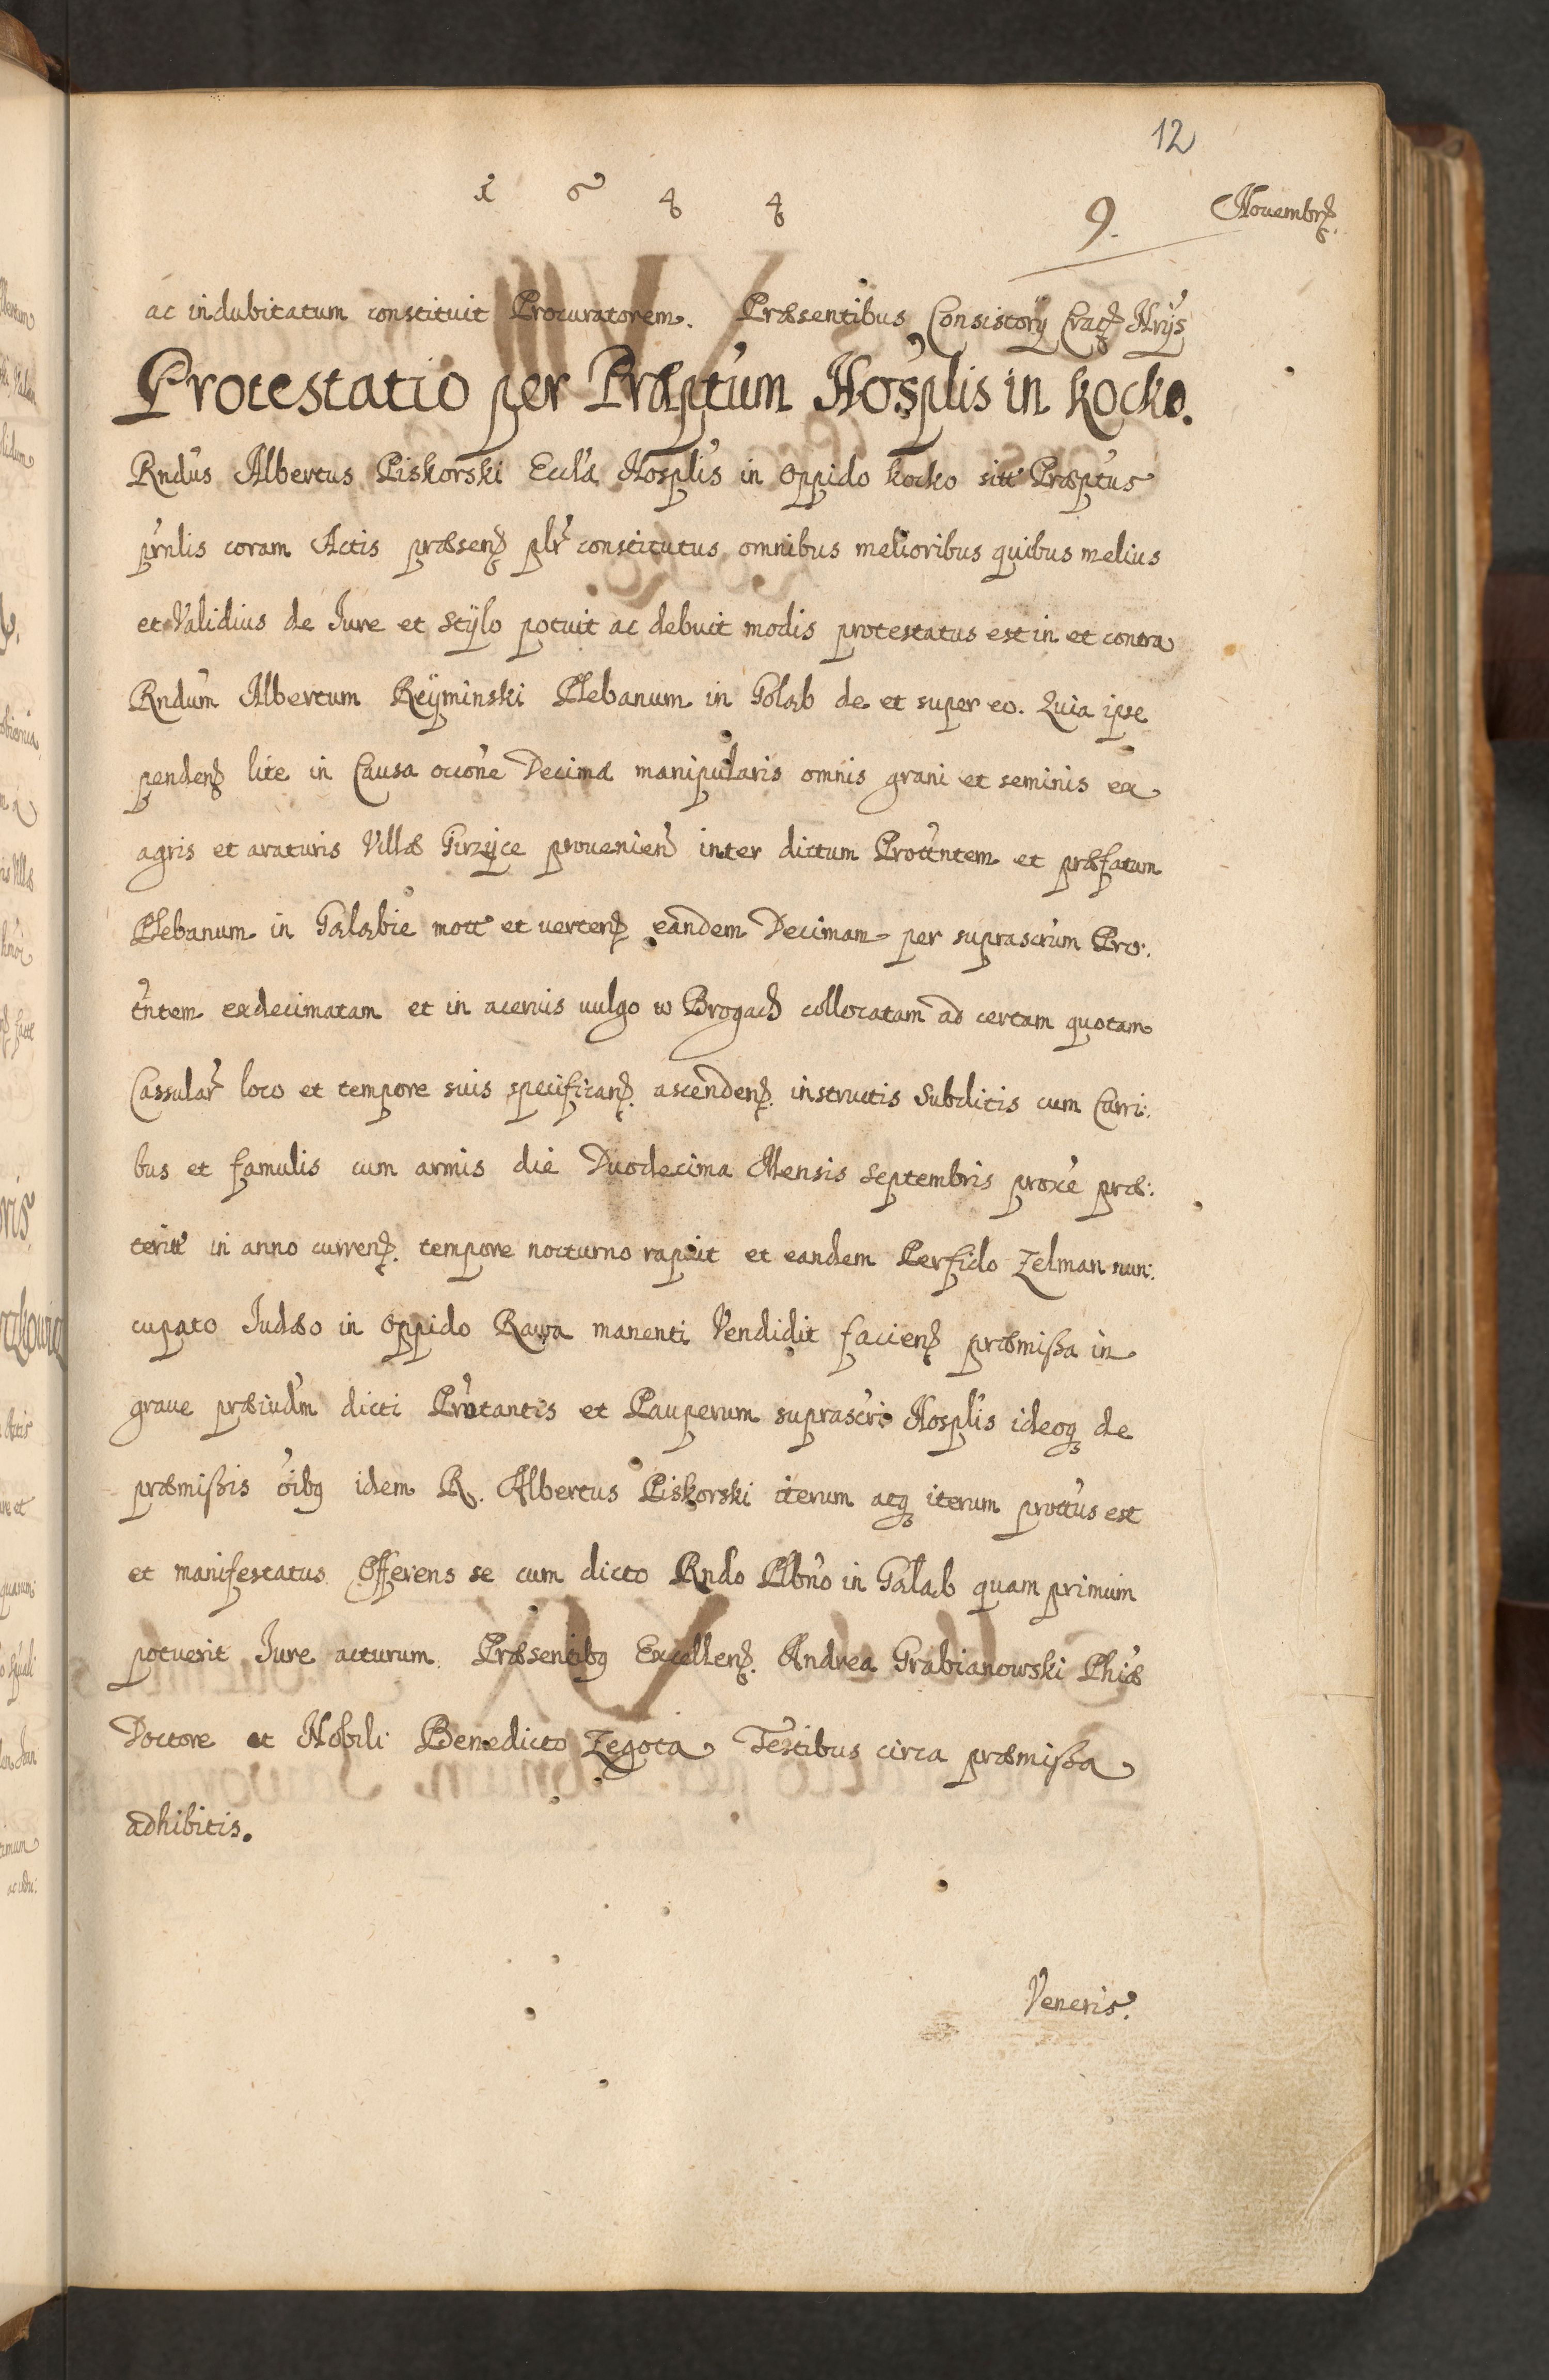 12
1 6 4 4 9. Novembrꝭ.
ac indubitatum constituit Procuratorem. Præsentibus Consistorÿ Cracꝭ Nrÿs
Protestatio per Præptum Hosplis in Kocko.
Rndus Albertus Piskorski Eccla Hosplis in Oppido Kocko sitt Præptus
prnlis coram Actis præsenꝭ plr constitutus omnibus melioribus quibus melius
et Validius de Jure et Stÿlo potuit ac debuit modis protestatus est in et contra
Rndum Albertum Reÿminski Plebanum in Goląb de et super eo. Quia ipse
pendenꝭ lite in Causa occone Decimæ manipularis omnis grani et seminis ex
agris et araturis Villæ Girzÿce provenien inter dictum Prottntem et præfatum
Plebanum in Gołąbie mott et vertenꝭ eandem Decimam per suprascrum Pro:
tntem exdecimatam et in acervis vulgo w Brogach collocatam ad certam quotam
Cassular loco et tempore suis specificanꝭ. ascendenꝭ. instructis Subditis cum Curri:
bus et famulis cum armis die Duodecima Mensis Septembris proxe præ:
teritt in anno currenꝭ. tempore nocturno rapuit et eandem Perfido Zelman nun:
cupato Judæo in Oppido Rawa manenti Vendidit facienꝭ præmissa in
grave præiudm dicti Prottantis et Pauperum suprascri Hosplis ideoqꝫ de
præmissis oibꝫ idem R. Albertus Piskorski iterum atqꝫ iterum prottus est
et manifestatus Offerens se cum dicto Rndo Plbno in Gołąb quam primum
potuerit Jure acturum. Præsentibꝫ Excellenꝭ. Andrea Grabianowski Phiæ
Doctore et Nobili Benedicto Zegota Testibus circa præmissa
adhibitis.
Veneris.